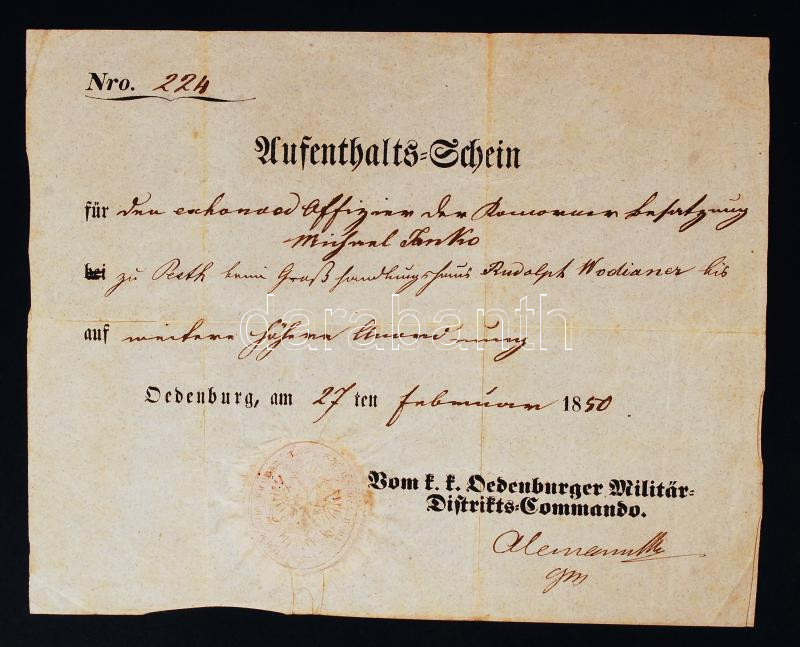 Nro. 224
Aufenthalts-Schein
für den exhonored Offizier der Komorner Besatzung
Michael Janko
bei zu Pesth beim Großhandlungshaus Rudolph Wodianer bis
auf weitere höhere Anordnung
darabanth
Oedenburg, am 27 ten Februar 1850
Vom k. k. Oedenburger Militär-
Distrikts-Commando.
Alemann